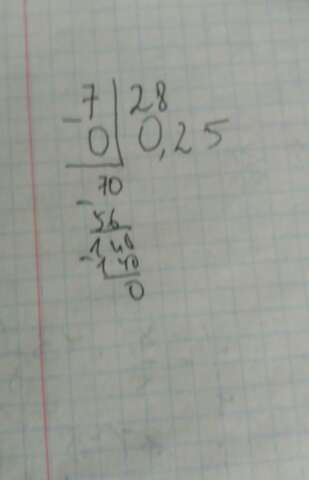 7 | 28
- 0 | 0,25
70
- 56
140
- 140
0